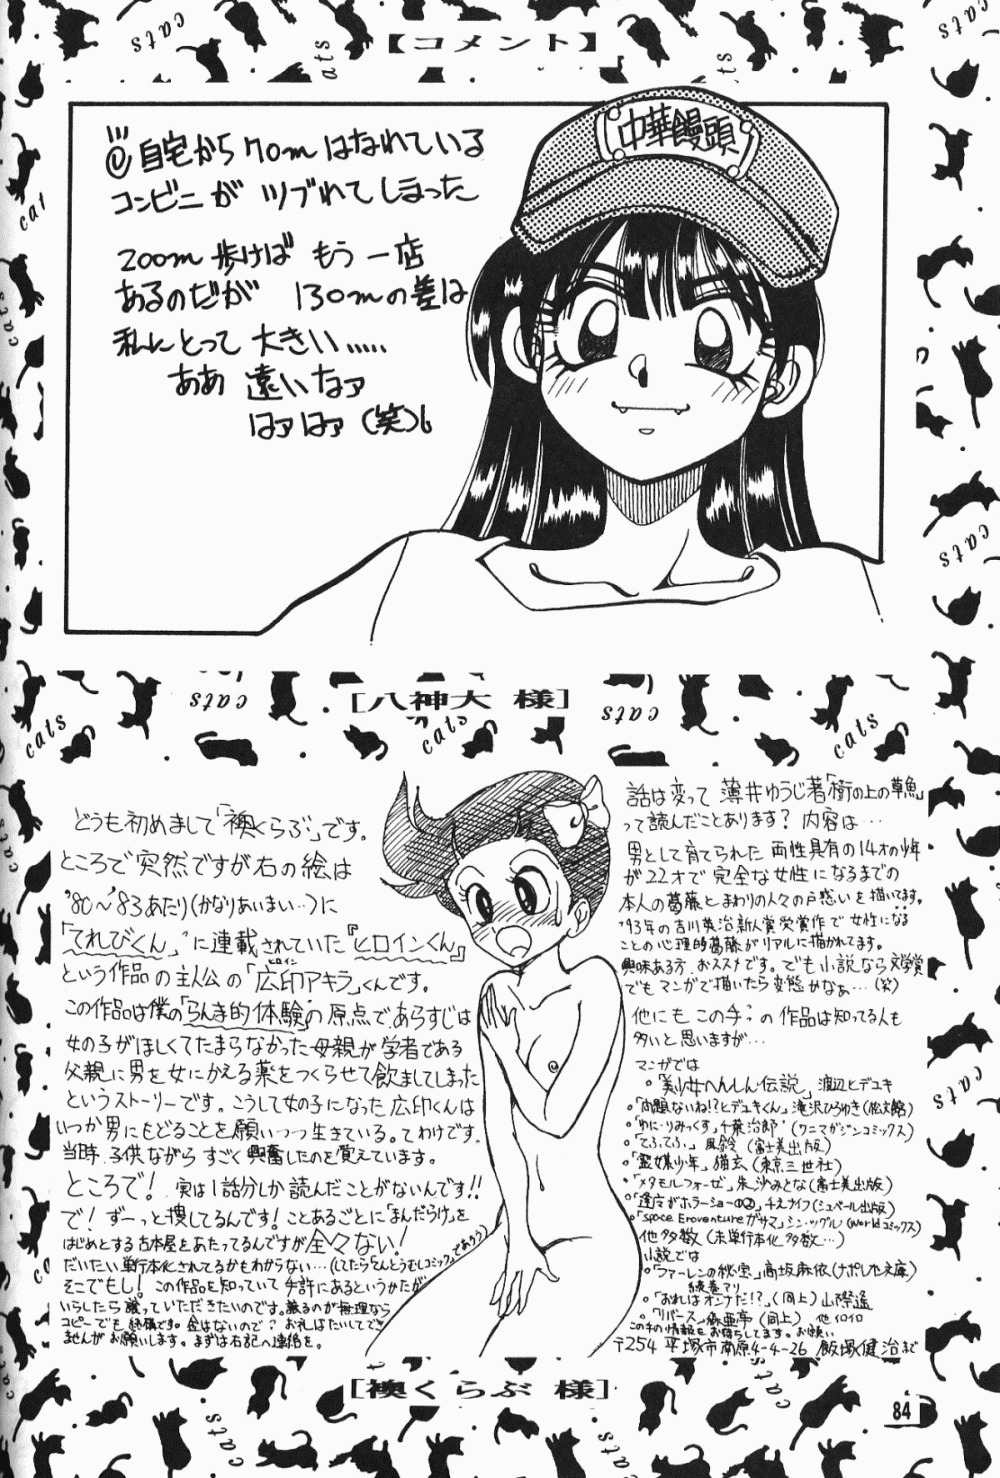 【コメント】
中華饅頭
自宅から70mはなれている
コンビニが ツブれてしまった
200m歩けば もう一店
あるのだが 130mの差は
私にとって 大きい.....
ああ 遠いなァ
はァはァ(笑)
[八神大 様]
どうも初めまして「襖くらぶ」です。
ところで突然ですが右の絵は
'80〜'83あたり(かなりあいまい…)に
「てれびくん」に連載されていた『ヒロインくん』
という作品の主人公の「広印アキラ」くんです。
ヒロイン
この作品は僕の「らんま的体験」の原点で、あらすじは
女の子がほしくてたまらなかった母親が学者である
父親に男を女にかえる薬をつくらせて飲ましてしまった
というストーリーです。こうして女の子になった広印くんは
いつか男にもどることを願いつつ生きている。てわけです。
当時、子供ながらすごく興奮したのを覚えています。
ところで! 実は1話分しか読んだことがないんです!!
で! ずーっと捜してるんです! ことあるごとに「まんだらけ」を
はじめとする古本屋をあたってるんですが全々ない!
だいたい単行本化されてるかもわからない…(してたらてんとうむしコミックであろう)
そこでもし! この作品を知っていて手許にあるというかたが
いらしたら譲っていただきたいのです。譲るのが無理なら
コピーでも結構です。金はないので? お礼はたいしてでき
ませんがお願いします。まずは右記へ連絡を。
話は変って 薄井ゆうじ著「樹の上の草魚」
って読んだことあります? 内容は…
男として育てられた 両性具有の14才の少年
が22才で 完全な女性になるまでの
本人の葛藤とまわりの人々の戸惑いを描いてます。
'93年の吉川英治新人賞受賞作で 女性になる
ことの心理的葛藤がリアルに描かれてます。
興味ある方、おススメです。でも小説なら文学賞
でもマンガで描いたら変態かなぁ…(笑)
他にもこの手の作品は知ってる人も
多いと思いますが…
マンガでは
。「美少女へんしん伝説」渡辺ヒデユキ
。「問題ないね!?ヒデユキくん」滝沢ひろゆき(松文館)
。「ゆに・りみっくす」千葉治郎(ワニマガジンコミックス)
。「てふてふ」風鈴(富士美出版)
。「霊媒少年」猫玄(東京三世社)
。「メタモルフォーゼ」朱沙みとな(富士美出版)
。「逢方がホラーショーの②」チエナイフ(シュベール出版)
。「Space Eroventureガサマ」シン・ツグル(Worldコミックス)
他多数(未単行本化多数…)
小説では
。「ファーレンの秘宝」高坂麻依(ナポレオン文庫)
続巻アリ
。「おれはオンナだ!?」(同上) 山際遙
。「リバース」麻亜亭(同上) 他イロイロ
この手の情報をお待ちしてます。お願い
〒254 平塚市南原4-4-26 飯塚健治まで
[襖くらぶ 様]
84
cats
cats
cats
cats
cats
cats
cats
cats
cats
cats
cats